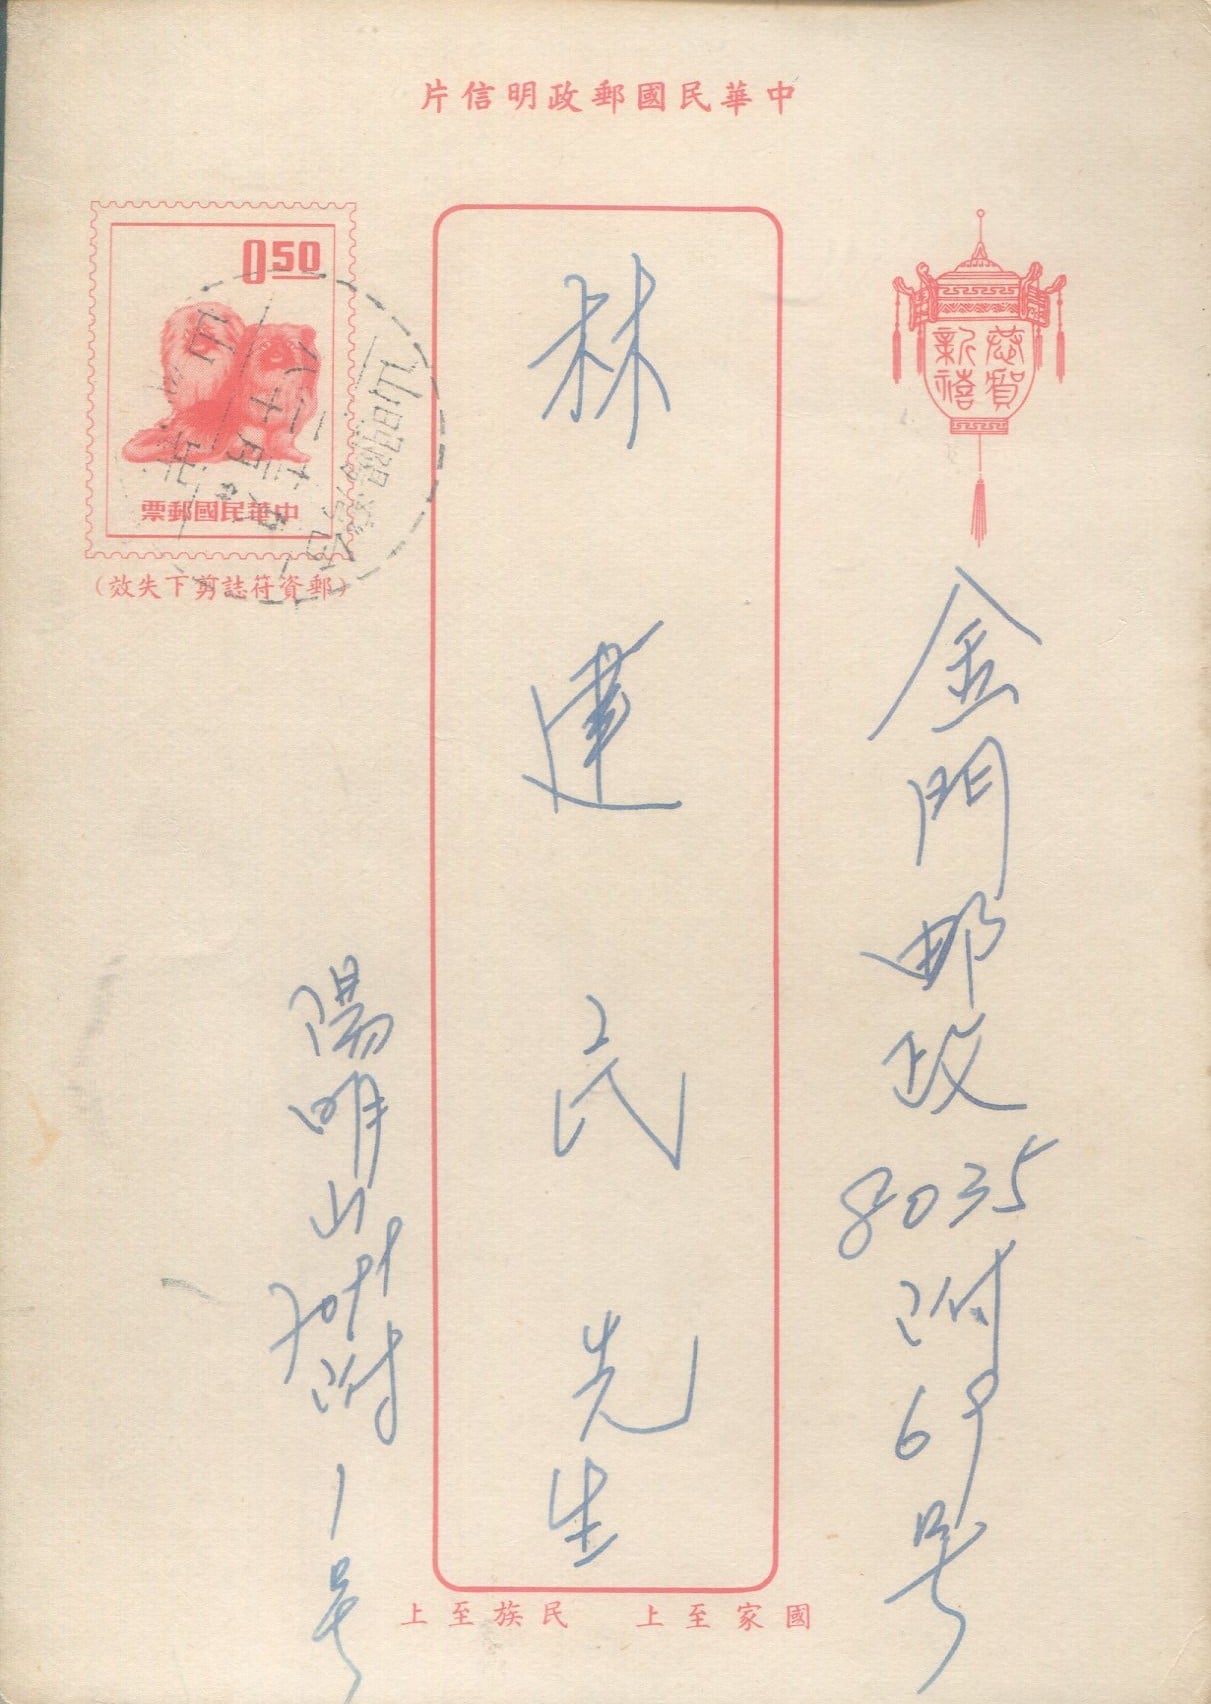 中華民國郵政明信片
0.50
中華民國郵票
(郵資符誌剪下失效)
恭賀
新禧
金門邮政8035附69号
林建民先生
陽明山
附1号
國家至上 民族至上